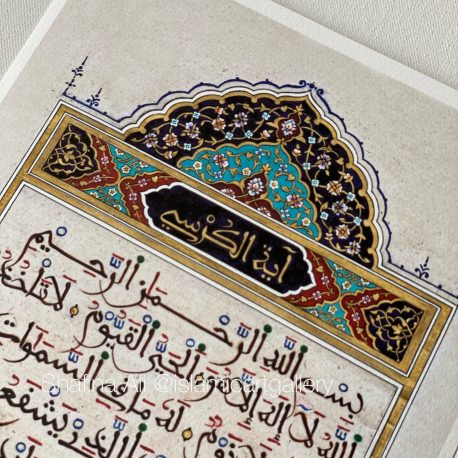 آية الكرسي
بسم الله الرحمن الرحيم
الله لا اله الا هو الحي القيوم لا
له ما في السموات
الذي يشفع
Shafina Ali @islamicartgallery